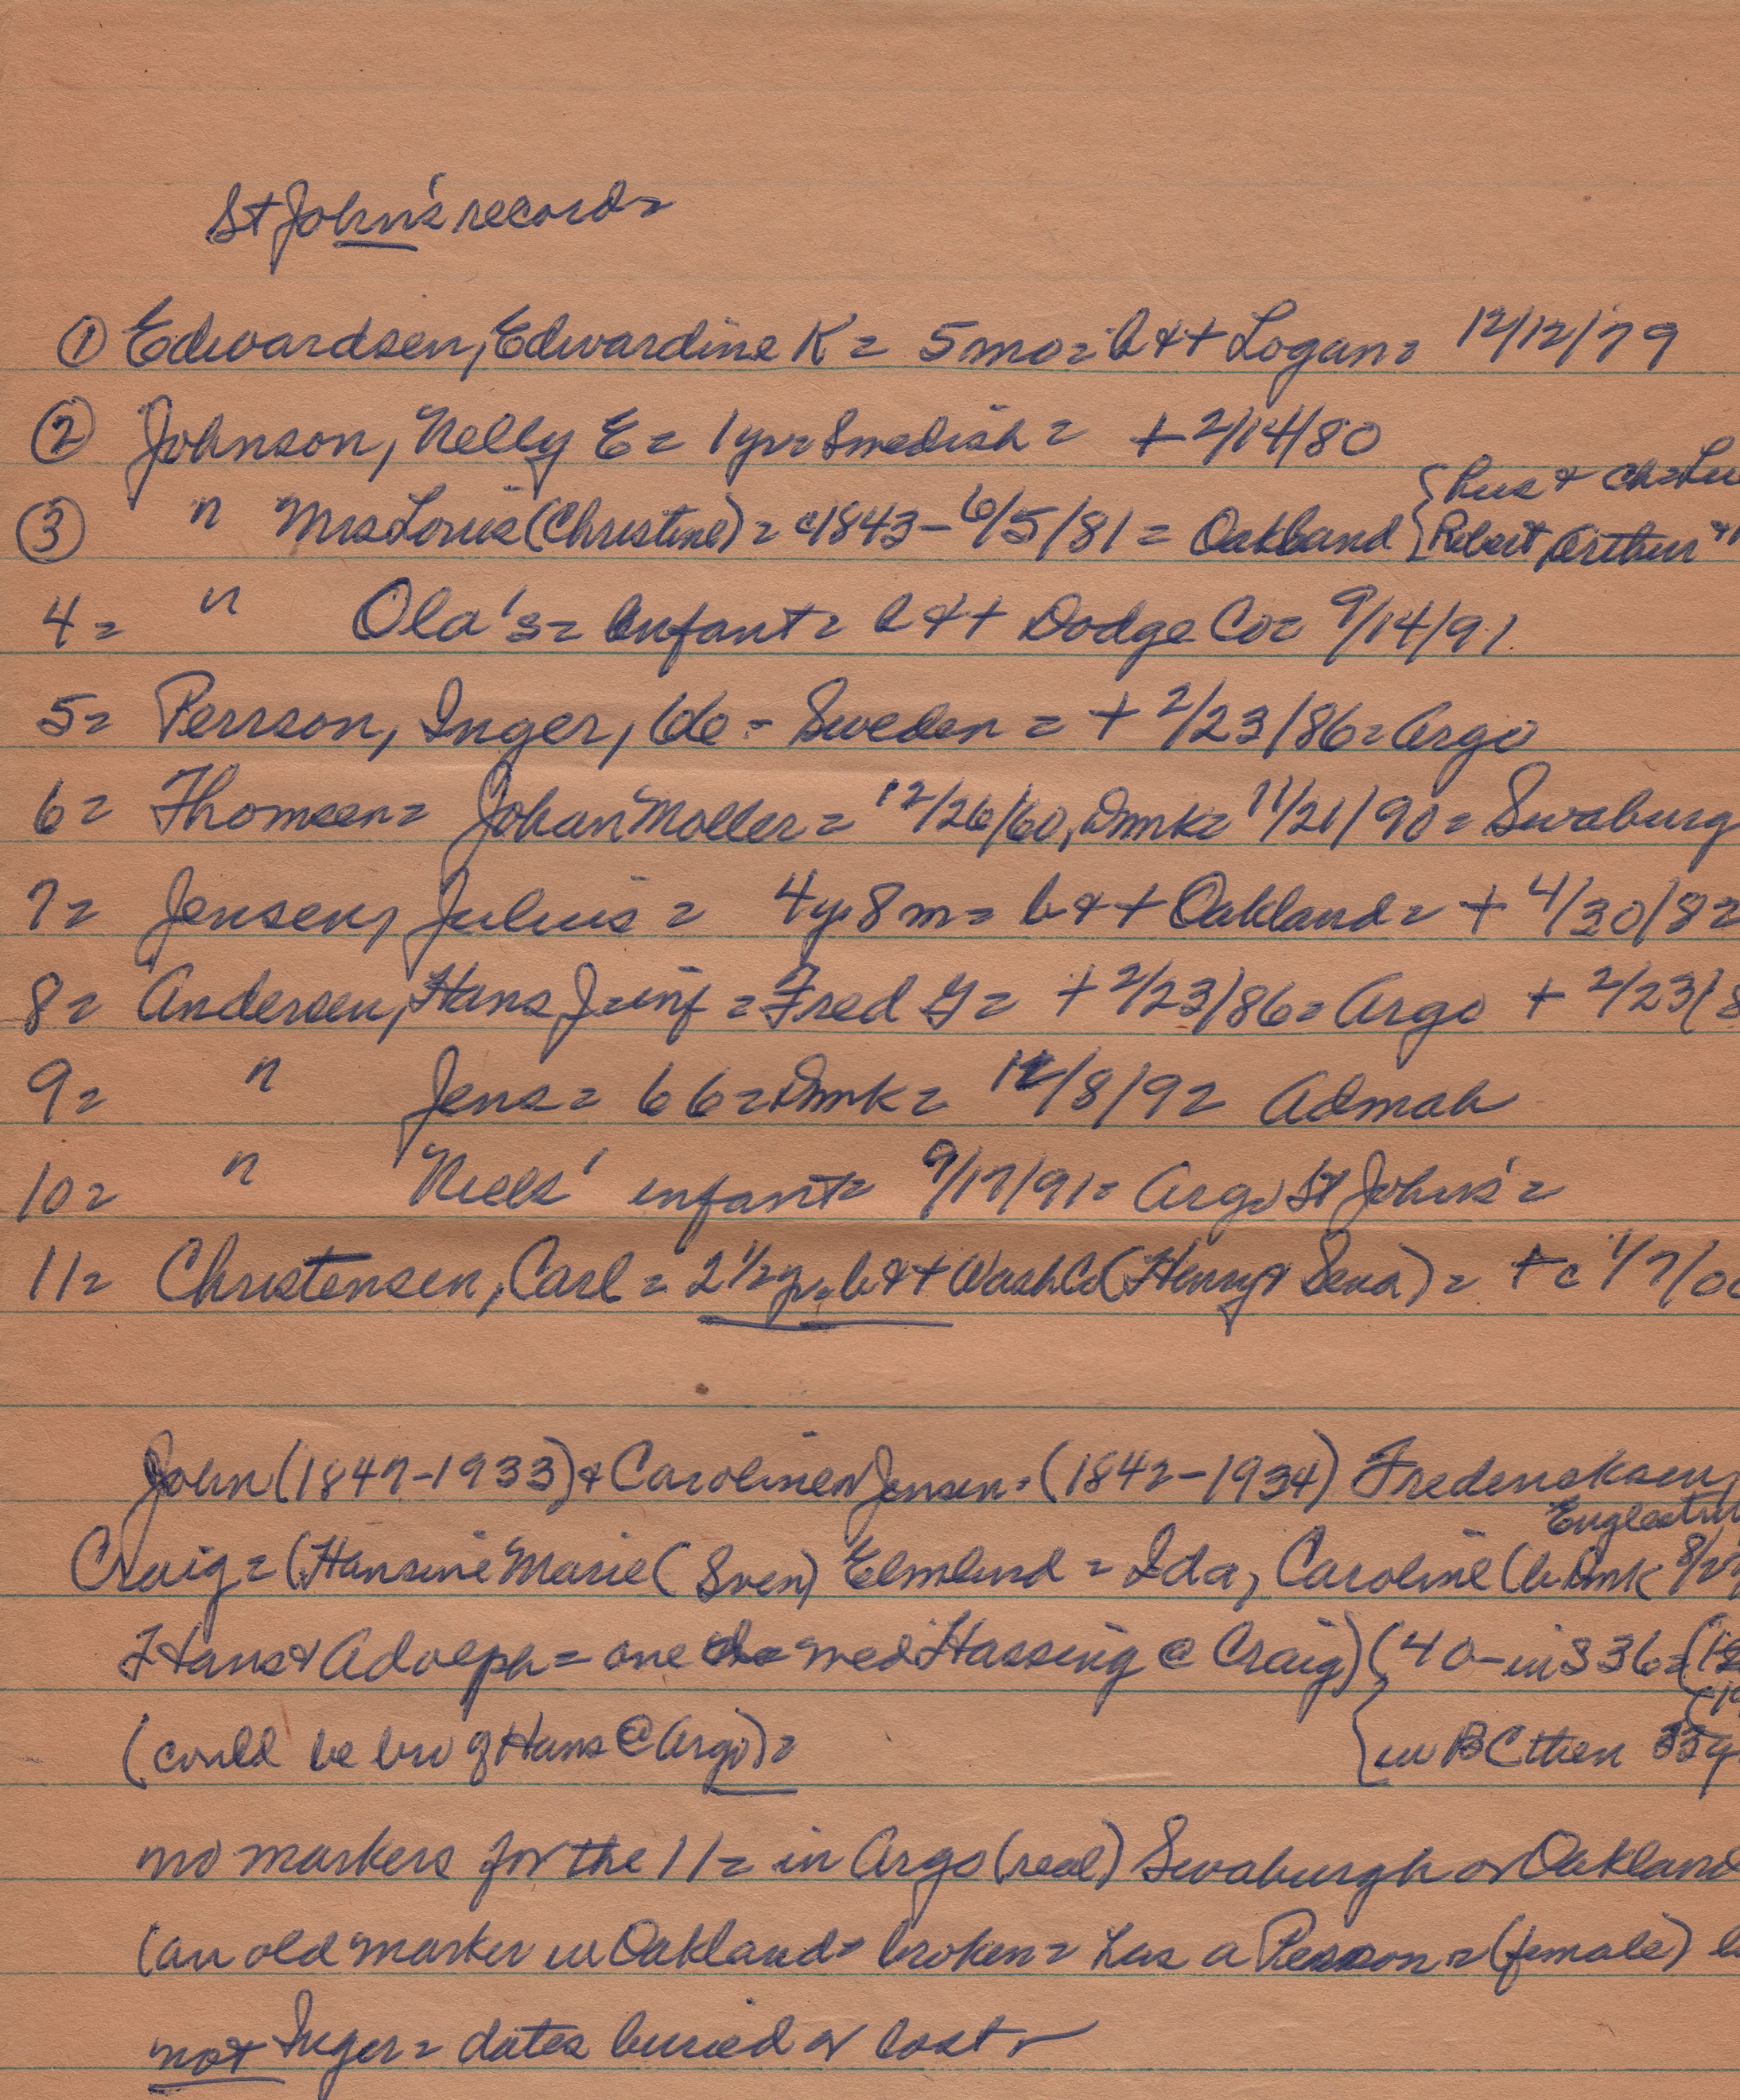 St John's records
① Edwardsen, Edwardine K = 5 mo = b & + Logan = 12/12/79
② Johnson, Nelly E = 1 yr = Swedish = + 2/14/80
③ " Mrs Louis (Christine) = c1843 - 6/5/81 = Oakland { hus & ch =
Robert, Arthur &
4 = " Ola's = infant = b & + Dodge Co = 9/14/91.
5 = Perrson, Inger, 66 = Sweden = + 2/23/86 = Argo
6 = Thomsen = Johan Moller = 12/26/60, Dmk = 11/21/90 = Swaburg
7 = Jensen, Julius = 4 y 8 m = b & + Oakland = + 4/30/82
8 = Andersen, Hans J = inf = Fred G = + 2/23/86 = Argo + 2/23/8
9 = " Jens = 66 = Dmk = 12/8/92 Admah
10 = " Niels' infant = 9/17/91 = Argo St John's =
11 = Christensen, Carl = 2 1/2 yr = b & + Wash Co (Henry & Sena) = + c 1/7/00
John (1847-1933) & Caroline n Jensen = (1842-1934) Fredericksen,
Craig = (Hansine Marie (Sven) Elmlund = Ida, Caroline (b Dmk 8/2
Hans & Adolph = one med Hassing @ Craig) { 40 - in 336 =
(could be bro of Hans @ Argo) = { in BC then 35 y
no markers for the 11 = in Argo (real) Swaburgh or Oakland
(an old marker in Oakland = broken = has a Person = (female) b
not Inger = dates buried or lost